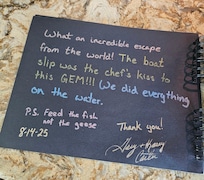 What an incredible escape
from the world! The boat
slip was the chef's kiss to
this GEM!!! We did everything
on the water.
P.S. Feed the fish
not the goose
8-14-25
Thank you!
Gary +